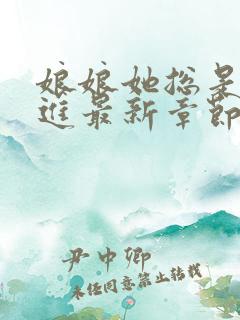 娘娘她总是
进最新章节
尹中卿
未经同意禁止转载